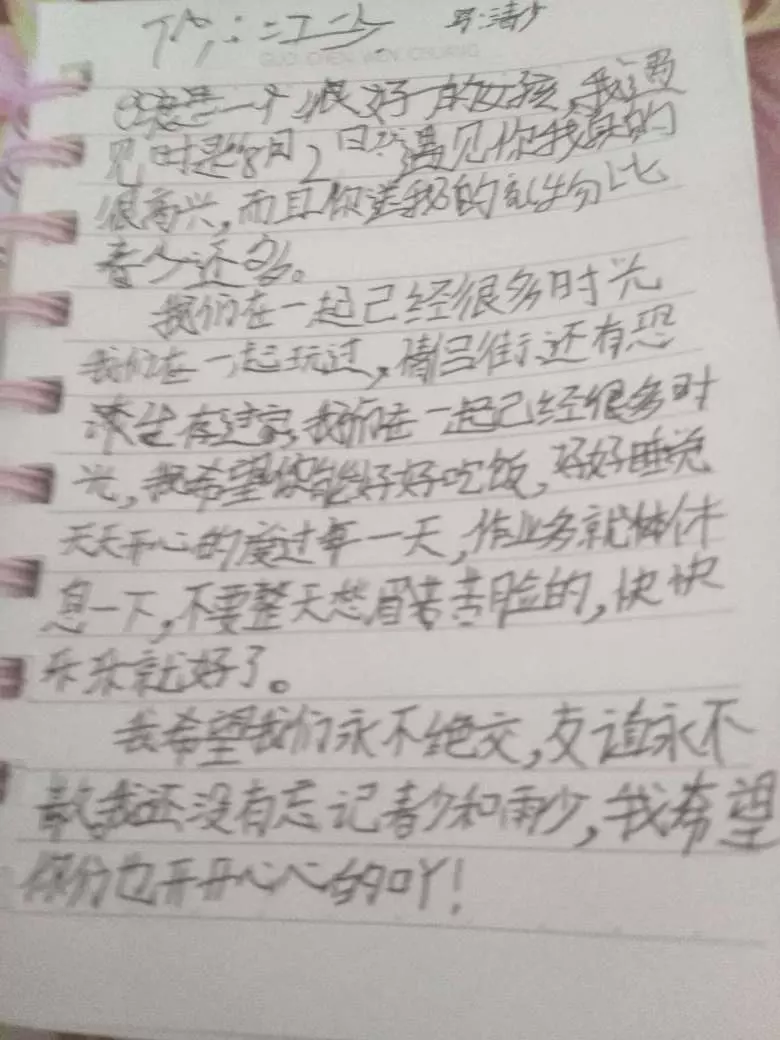 GUO CHEN WEN CHUANG
是一个很好的女孩,我遇
见时是8月2日遇见你我真的
很高兴,而且你送我的礼物比
青少还多。
我们在一起已经很多时光
我们在一起玩过,情吕街还有恐
在一起已经很多时
光,我希望你能好好吃饭,好好睡觉
天天开心的度过每一天,作业多就体休
息一下,不要整天愁眉苦苦脸的,快快
乐乐就好了。
我希望我们永不绝交,友谊永不
散我还没有忘记青少和雨少,我希望
你们也开开心心的吖!